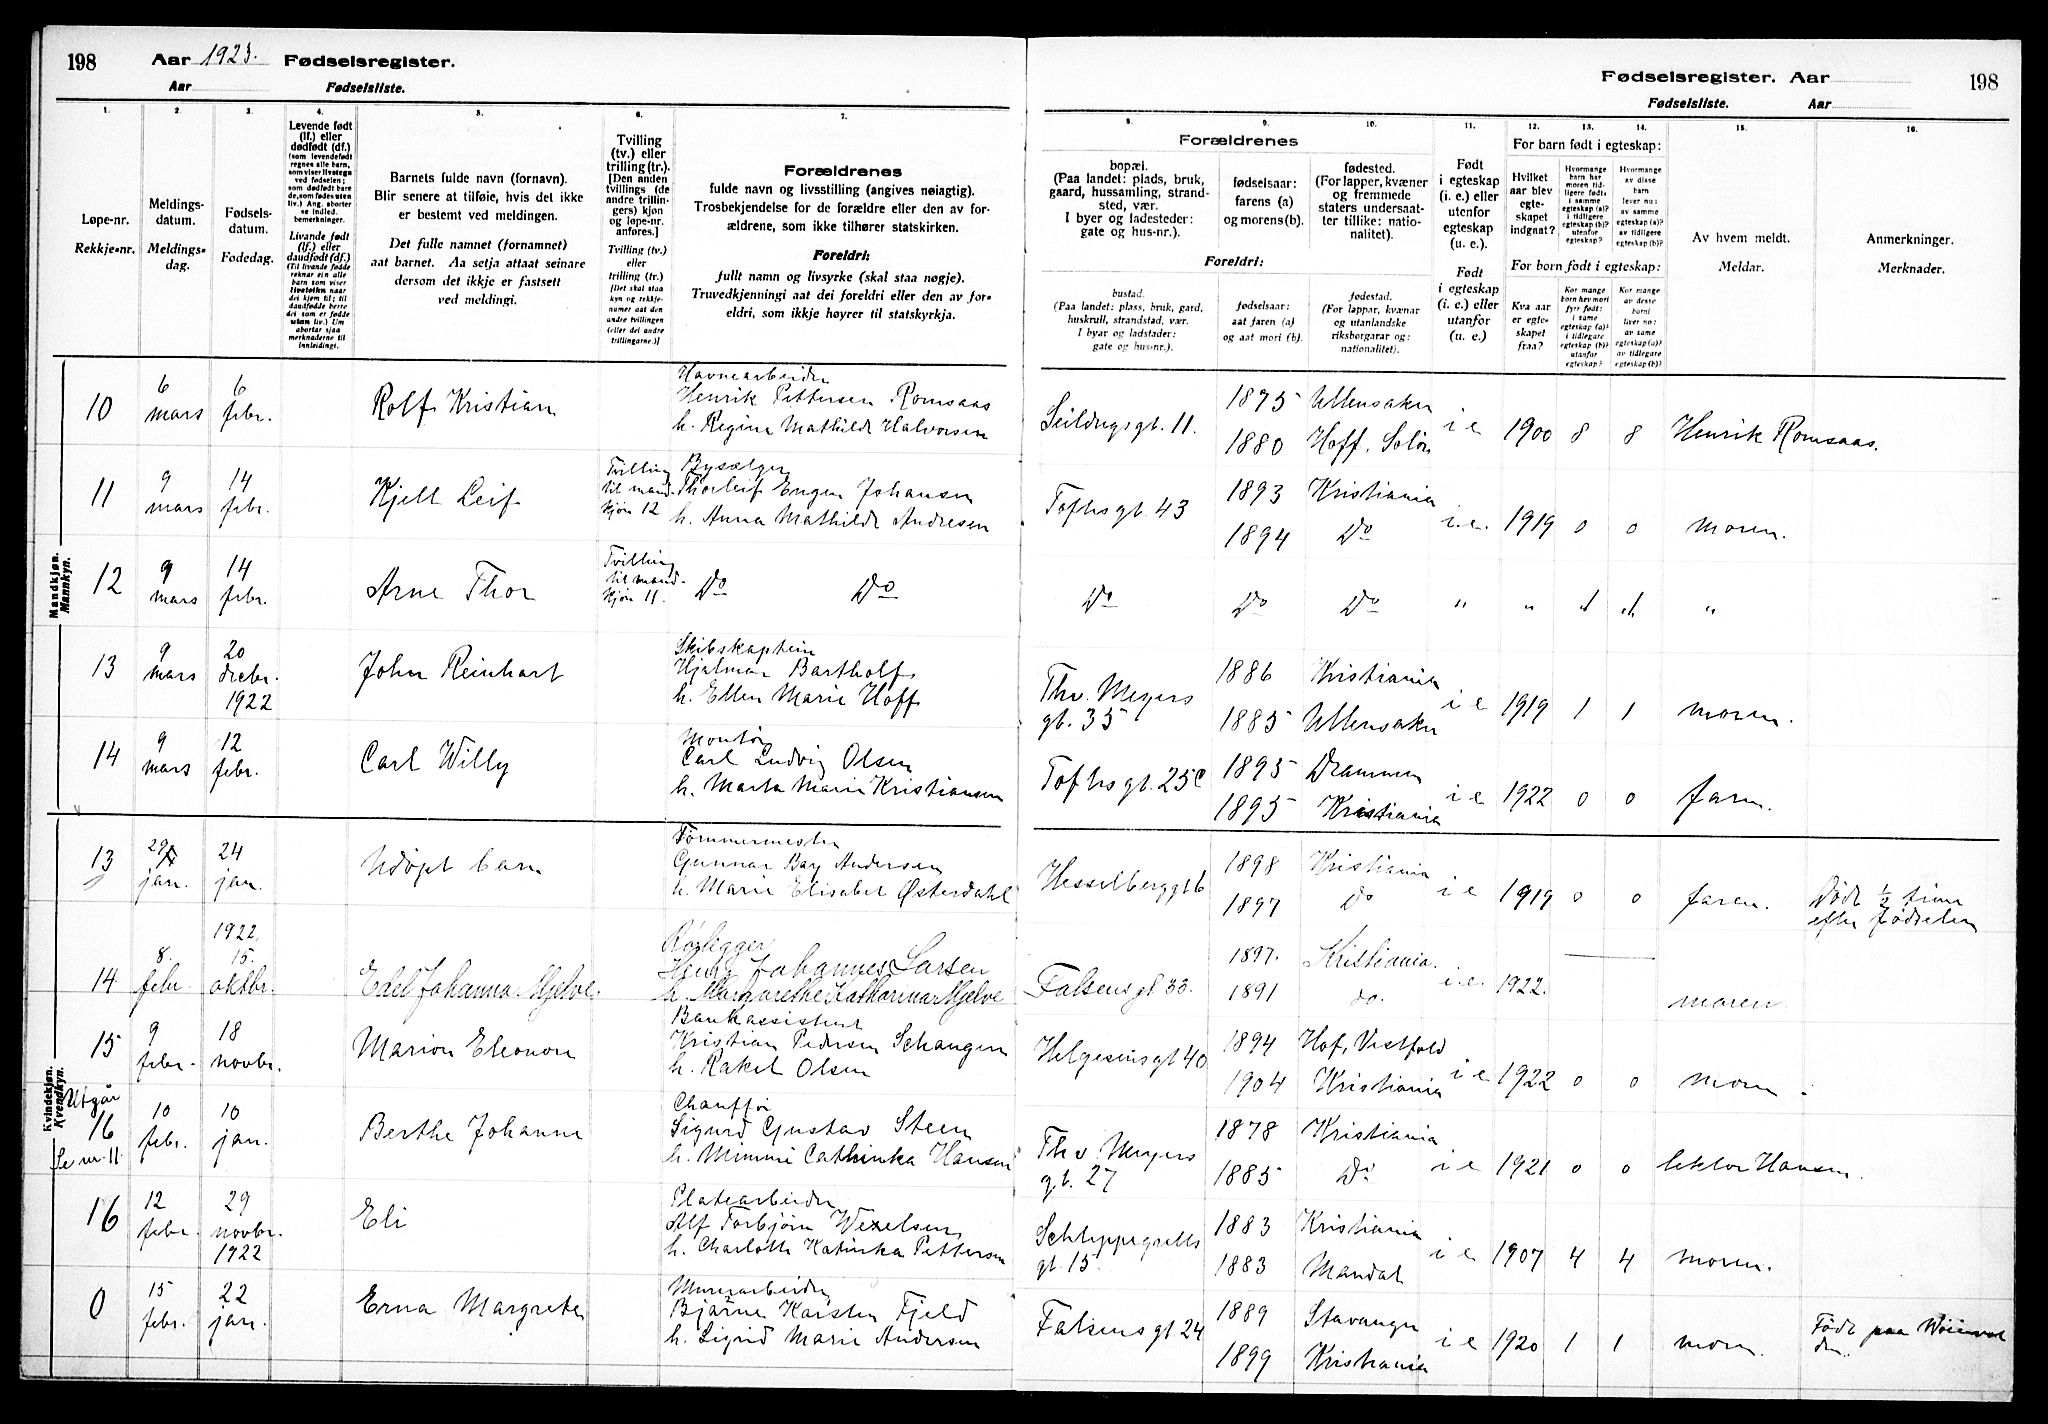 198 Aar 1923. Fødselsregister.
Aar Fødselsliste.
Fødselsregister. Aar 198
Fødselsliste. Aar
1. 2. 3. 4. 5. 6. 7.
Løpe-nr.
Rekkje-nr.
Meldings-
datum.
Meldings-
dag.
Fødsels-
datum.
Fødedag.
Levende født
(lf.) eller
dødfødt (df.)
(som levendefødt
regnes alle barn,
som viser livstegn
ved fødselen;
som dødfødt bare
de, som fødes uten
liv.) Ang. aborter
se indled.
bemerkninger.
Livande født
(lf.) eller
daudfødt (df.)
(Til livande fødde
reknar ein alle
barn som viser
livsteikn naar
dei kjem til; til
daudfødde berre
dei som er fødde
utan liv.) Um
abortar sjaa
merknaderne til
innleidingi.
Barnets fulde navn (fornavn).
Blir senere at tilføie, hvis det ikke
er bestemt ved meldingen.
Det fulle namnet (fornamnet)
aat barnet. Aa setja attaat seinare
dersom det ikkje er fastsett
ved meldingi.
Tvilling
(tv.) eller
trilling (tr.).
[Den anden
tvillings (de
andre trillin-
gers) kjøn
og løpe-nr.
anføres.]
Tvilling (tv.)
eller
trilling (tr.)
[Det skal staa
kyn og rekkje-
numer aat den
andre tvillingen
(eller dei andre
trillingarne.)]
Forældrenes
fulde navn og livsstilling (angives nøiagtig).
Trosbekjendelse for de forældre eller den av for-
ældrene, som ikke tilhører statskirken.
Foreldri:
fullt namn og livsyrke (skal staa nøgje).
Truvedkjenningi aat dei foreldri eller den av for-
eldri, som ikkje høyrer til statskyrkja.
8. 9. 10. 11. 12. 13. 14. 15. 16.
Forældrenes
bopæl.
(Paa landet: plads, bruk,
gaard, hussamling, strand-
sted, vær.
I byer og ladesteder:
gate og hus-nr.).
fødselsaar:
farens (a)
og morens (b).
fødested.
(For lapper, kvæner
og fremmede
staters undersaat-
ter tillike: natio-
nalitet).
Foreldri:
bustad.
(Paa landet: plass, bruk, gard,
huskrull, strandstad, vær.
I byar og ladstader:
gate og hus-nr.).
fødselsaar:
aat faren (a)
og aat mori (b).
fødestad.
(For lappar, kvænar
og utanlandske
riksborgarar og:
nationalitet).
Født
i egteskap
(i. e.) eller
utenfor
egteskap
(u. e.).
Født
i egteskap
(i. e.) eller
utanfor
(u. e.).
For barn født i egteskap:
Hvilket
aar blev
egte-
skapet
indgaat?
Hvormange
barn har
moren tid-
ligere født,
i samme
egteskap (a)?
i tidligere
egteskap (b)?
utenfor
egteskap?
Hvormange
av disse
barn
lever nu:
av samme
egteskap (a)?
av tidligere
egteskap (b)?
For born født i egteskap:
Kva aar
er egte-
skapet
fraa?
Kor mange
born hev mori
fyrr født:
i same
egteskap (a)?
i tidlegare
egteskap (b)?
utanfor
egteskap?
Kor mange
av desse
borni
liver no:
av same
egteskap (a)?
av tidlegare
egteskap (b)?
Av hvem meldt.
Meldar.
Anmerkninger.
Merknader.
Mandkjøn.
Mannkyn.
10 6 mars 6 febr. Rolf Kristian
Havnearbeider
Henrik Pettersen Romsaas
h. Regine Mathilde Halvorsen
Seildugsgt. 11. 1875 Ullensaker i e 1900 8 8 Henrik Romsaas.
1880 Hoff, Solør
11 9 mars 14 febr. Kjell Leif
Tvilling
til mand-
kjøn 12
Bysælger
Thorleif Engen Johansen
h. Anna Mathilde Andresen
Toftesgt. 43 1893 Kristiania i. e. 1919 0 0 moren.
1894 Do
12 9 mars 14 febr. Arne Thor
Tvilling
til mand-
kjøn 11.
Do Do
Do Do Do " " " " "
13 9 mars 20 decbr. 1922 John Reinhart
Skibskaptein
Hjalmar Bartholf
h. Ellen Marie Hoff
Thv. Meyers
gt. 35
1886 Kristiania i e 1919 1 1 moren.
1885 Ullensaker
14 9 mars 12 febr. Carl Willy
Montør
Carl Ludvig Olsen
h. Marta Marie Kristiansen
Toftesgt. 25c 1895 Drammen i e 1922 0 0 faren.
1895 Kristiania
Kvindekjøn.
Kvendkyn.
13 29 jan. 24 jan. Udøpt barn
Tømmermester
Gunnar Bay Andersen
h. Marie Elisabet Østerdahl
Hesselberggt 6 1898 Kristiania i e 1919 0 0 faren.
1897 do
Død ½ time
efter fødselen
14 8. febr. 1922 15. oktbr. Edel Johanna Mjelve.
Rørlegger
Henry Johannes Larsen
h. Margarethe Katharina Mjelve
Falsensgt 33. 1897. Kristiania. i. e. 1922. moren
1891 do.
15 9 febr. 18 novbr. Marion Eleonore
Bankassistent
Kristian Pedersen Schangen
h. Rakel Olsen
Helgesensgt 40 1894 Hof, Vestfold i e 1922 0 0 moren.
1904 Kristiania
Utgår
16
Se nr. 11.
10 febr. 10 jan. Berthe Johanne
Chauffør
Sigurd Gustav Steen
h. Mimmi Cathinka Hansen
Th v Meyers
gt. 27
1878 Kristiania i e 1921 0 0 lektor Hansen.
1885 Do
16 12 febr. 29 novbr. 1922 Eli
Platearbeider
Alf Torbjørn Wexelsen
h. Charlotte Katinka Pettersen
Schleppegrells
gt. 15
1883 Kristiania i e 1907 4 4 moren.
1883 Mandal
0 15 febr. 22 jan. Erna Margrete
Murerarbeider
Bjarne Karsten Fjeld
h. Sigrid Marie Andersen
Falsensgt 24 1889 Stavanger i e 1920 1 1 moren.
1899 Kristiania
Født paa